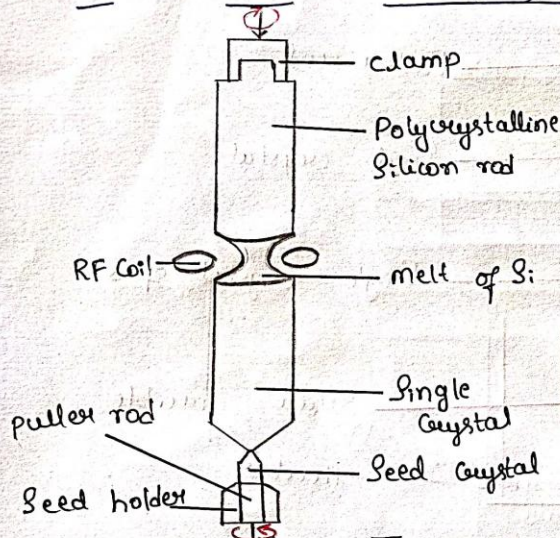 clamp
Polycrystalline
Silicon rod
RF Coil
melt of Si
Single
Crystal
puller rod
Seed Crystal
Seed holder